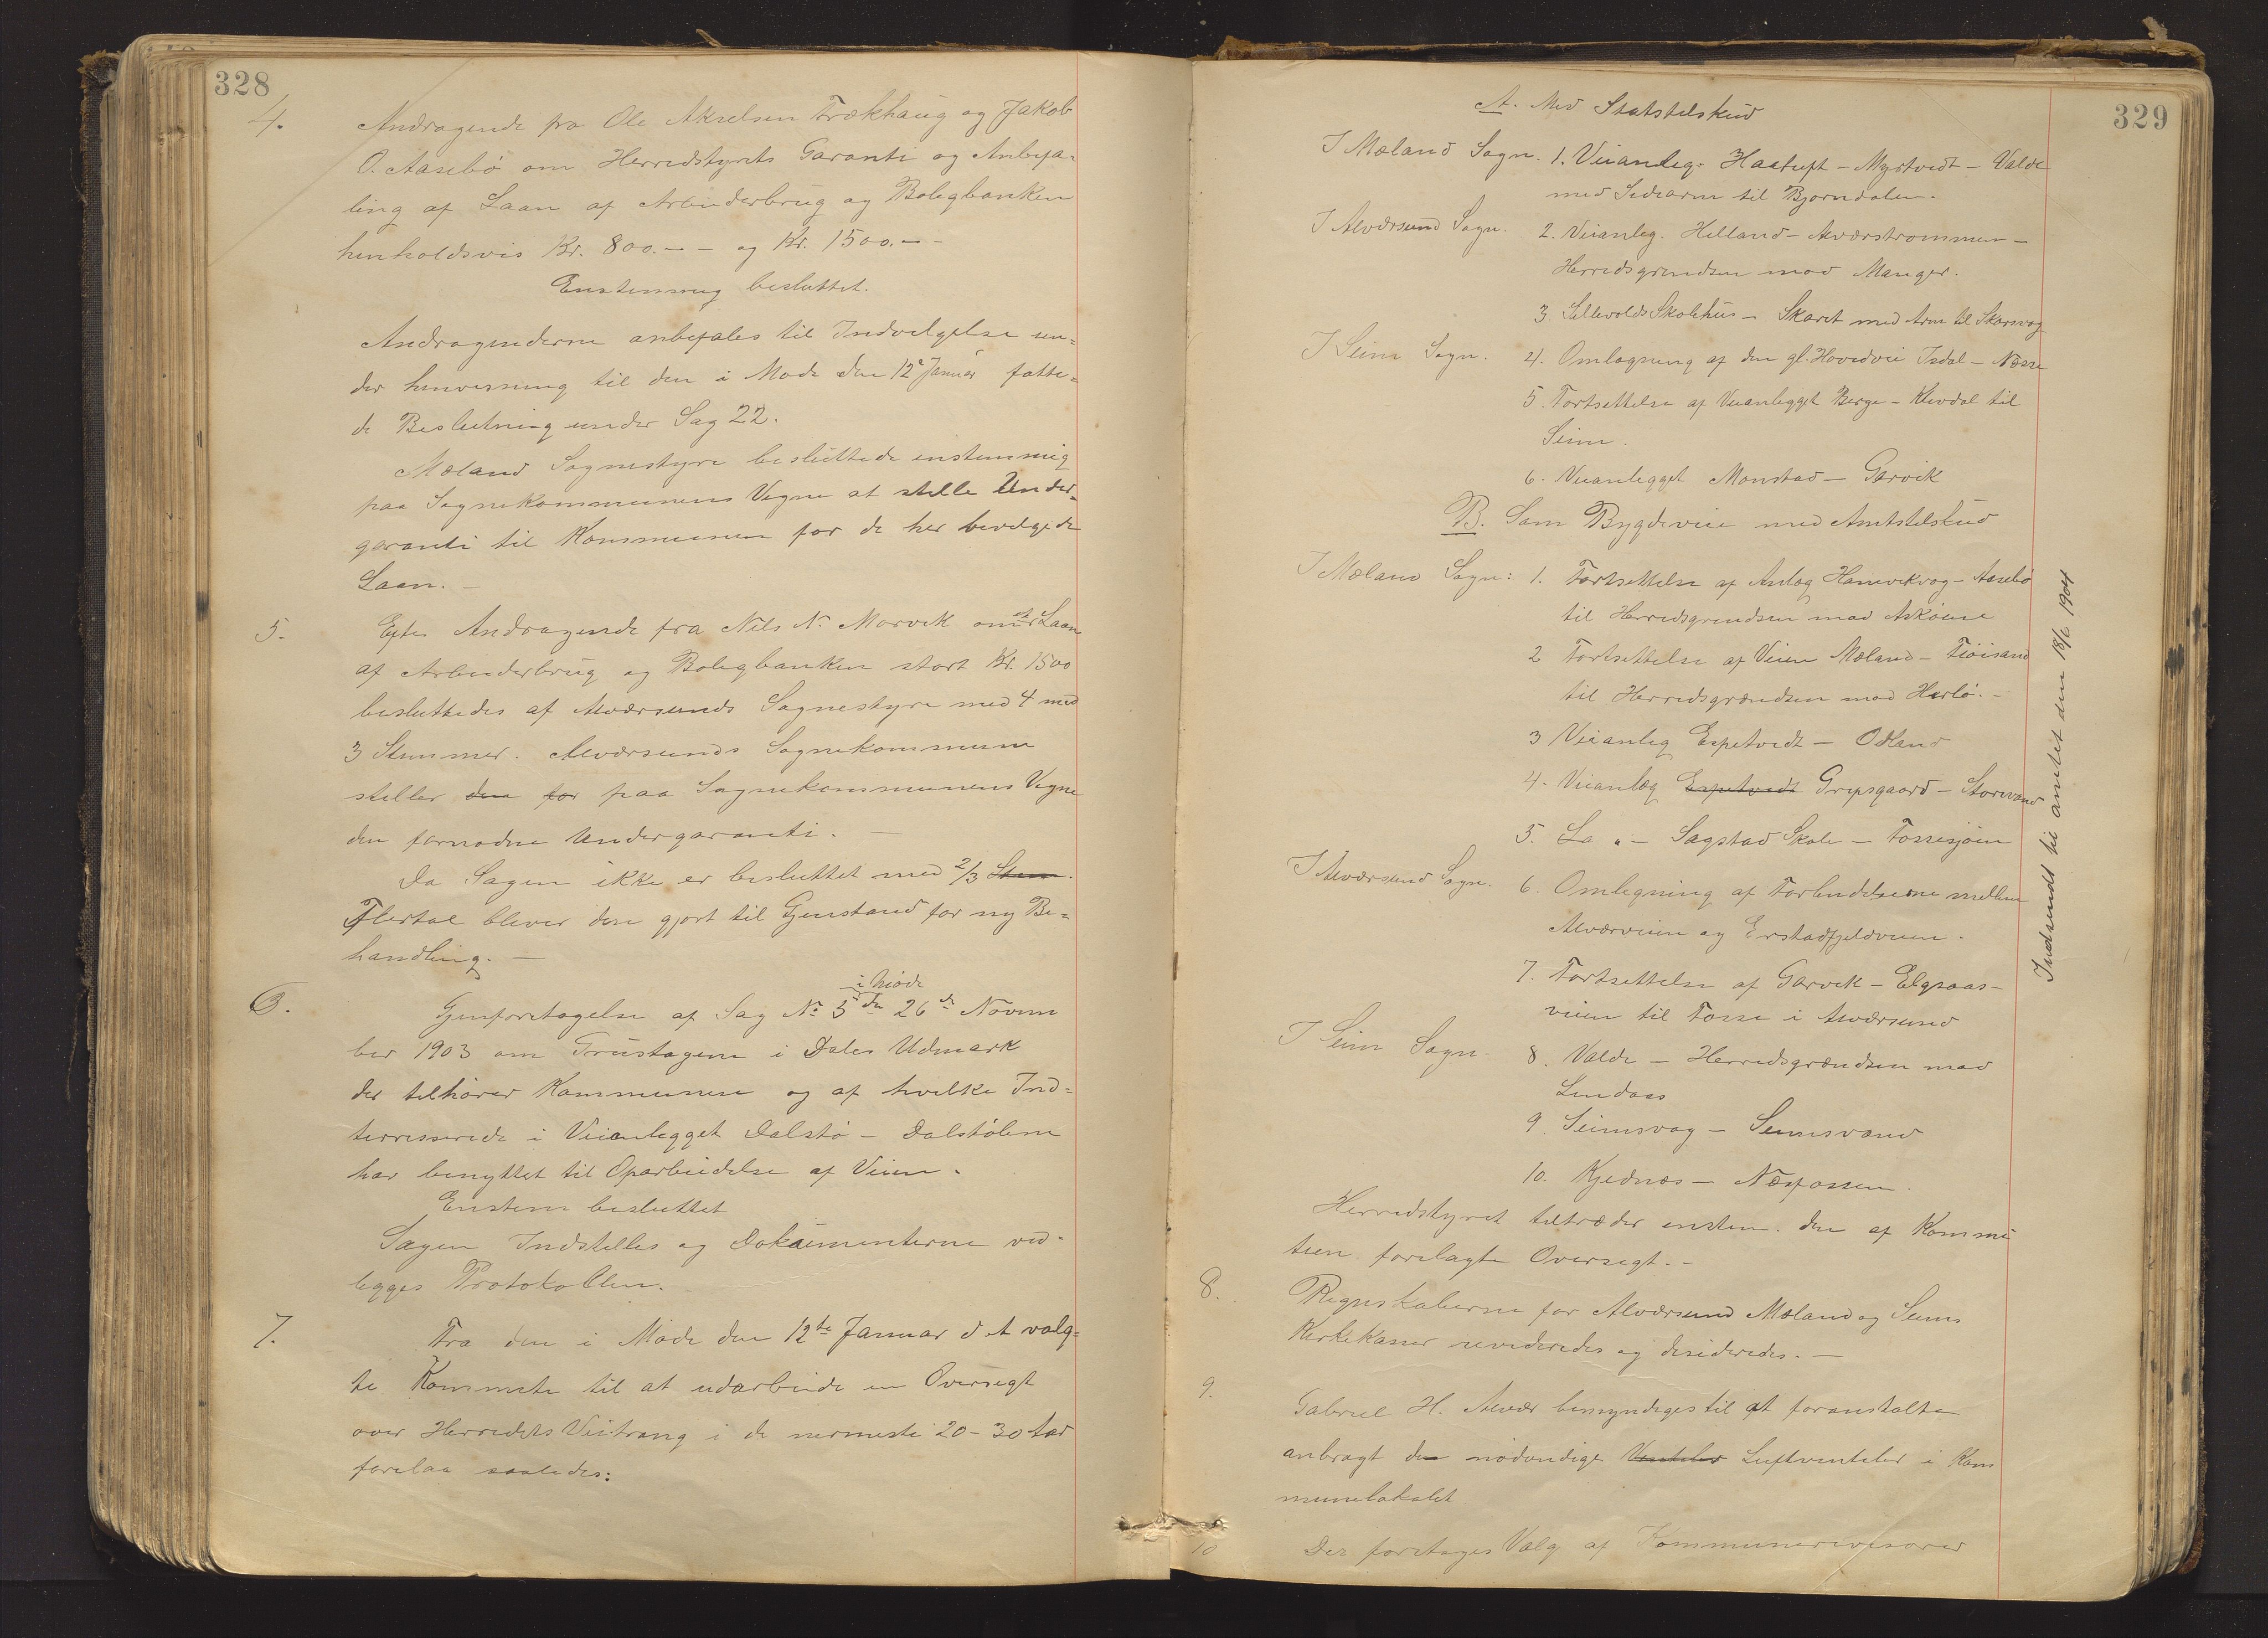 328
4. Andragende fra Ole Akselsen Trækhaug og Jakob
O. Aasebø om Herredstyrets Garanti og Anbefa-
ling af Laan af Arbeiderbrug og Boligbanken
henholdsvis Kr. 800.-- og Kr. 1500.--
Enstemmig besluttet.
Andragenderne anbefales til Indvilgelse un-
der henvisning til den i Møde den 12te Januar fatte-
de Beslutning under Sag 22.
Mæland Sognestyre besluttede enstemmig
paa Sognekommunens Vegne at stille Under-
garanti til Kommunen for de her bevilgede
Laan. -
5. Efter Andragende fra Nils N. Morvik om et Laan
af Arbeiderbrug og Boligbanken stort Kr. 1500
besluttedes af Alværsunds Sognestyre med 4 mod
3 Stemmer. Alværsunds Sognekommune
stiller den for paa Sognekommunens Vegne
den fornødne Undergaranti. -
Da Sagen ikke er besluttet med 2/3 Stem.
Flertal bliver den gjort til Gjenstand for ny Be-
handling. -
i Møde
6. Gjenforetagelse af Sag No 5 den 26de Novem
ber 1903 om Grustagene i Dales Udmark
der tilhører Kommunen og af hvilke Ind-
terresserede i Veianlegget Dalstø - Dalstølene
har benyttet til Oparbeidelse af Veien.
Enstem besluttet
Sagen Indstilles og Dokumenterne ved-
legges Protokollen.
7. Fra den i Møde den 12te Januar d A valg-
te Kommite til at udarbeide en Oversigt
over Herredets Veitrang i de nermeste 20-30 Aar
forelaa saaledes:
329
A. Med Statstilskud
I Mæland Sogn. 1. Veianleg. Haatuft - Myrtvedt - Valde
med Sidearm til Bjørndalen.
I Alværsund Sogn. 2. Veianleg. Helland - Alværstrømmen -
Herredsgrendsen mod Manger.
3. Sellevolds Skolehus - Skaret med Arm til Skarsvag
I Seim Sogn. 4. Omlægning af den gl. Hovedvei Isdal - Næsse
5. Fortsettelse af Veianlegget Berge - Klevdal til
Seim.
6. Veianlegget Monstad - Garvik
B. Som Bygdeveie med Amtstilskud
I Mæland Sogn: 1. Fortsettelse af Anlæg Hamvikvag - Aasebø
til Herredsgrendsen mod Askøene
2 Fortsettelse af Veien Mæland - Fløisand
til Herredsgrændsen mod Herlø. -
3 Veianleg Espetvedt - Odland
4. Veianlæg Espetvedt Gripsgaard - Storevand
5. La " - Sagstad Skole - Fossesjøen
I Alværsund Sogn. 6. Omlegning af Forbindelserne mellem
Alværveien og Erstadfjeldveien.
7. Fortsettelse af Garvik - Elgsaas-
veien til Fosse i Alværsund
I Seim Sogn. 8. Valde - Herredsgrændsen mod
Lindaas
9. Seimsvag - Seimsvand
10. Kjednæs - Næsfossen.
Herredstyret tiltræder enstem. den af Kommi
teen forelagte Oversigt. -
8. Regnskaberne for Alværsund Mæland og Seims
Kirkekasser revideredes og desideredes. -
9. Gabriel H. Alvær bemyndiges til at foranstalte
anbragt de nødvendige Ventiler Luftventiler i Kom
munelokalet
10 Der foretages Valg af Kommunerevisorer
Indsendt til amtet den 18/6 1904